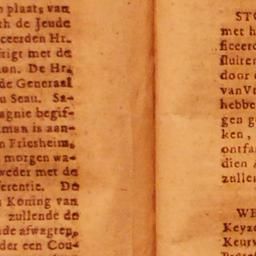 plaats van
th de Jeude
ceerden Hr.
tigt met de
on. De Hr.
de Generaal
u Seau. Sa-
agnie begif-
man is aan-
n Friesheim,
morgen wa-
weder met de
ferentie. De
Koning van
zullende de
de afwagten,
der een Cou-
STO
met h
ficeerd
sluiten
door
van Vr
hebbe
gen g
ken,
ontfa
dien
zullen
WE
Keyze
Keurv